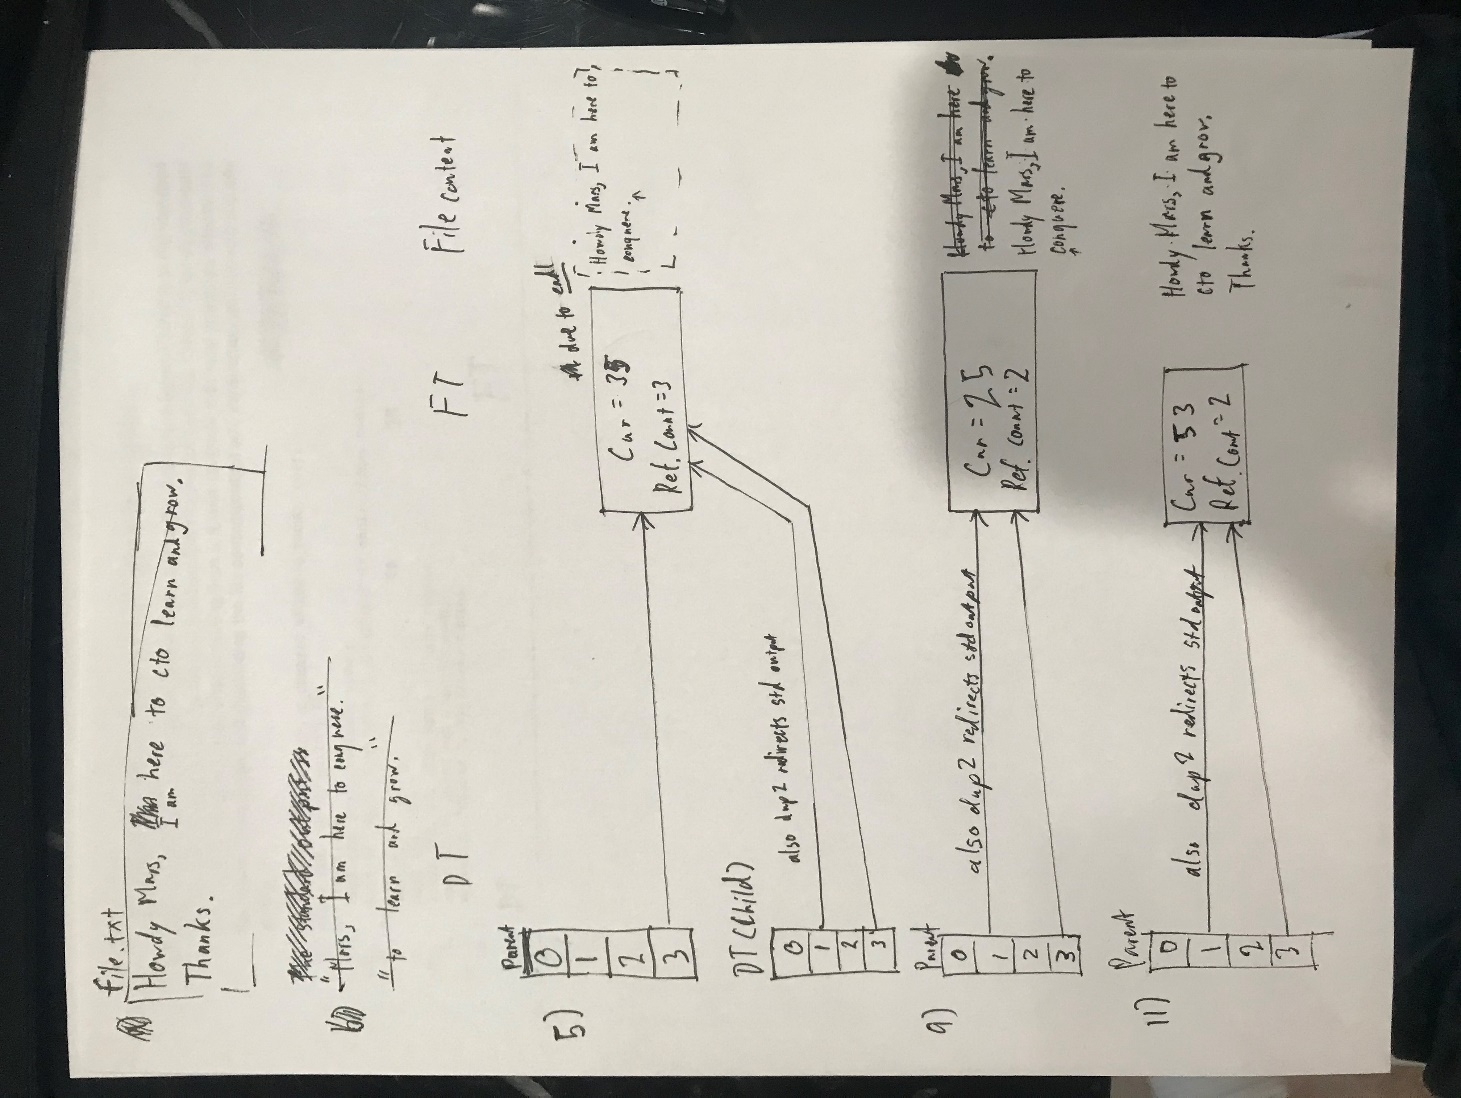 file.txt
Howdy Mars, I am here to cto learn and grow.
Thanks.
b)
"Mors, I am here to conquere."
"to learn and grow."
DT
FT
File content
5)
Parent
0
1
2
3
Cur = 35
Ref. Count = 3
due to endl
Howdy Mars, I am here to
conquere.
DT (Child)
0
1
2
3
also dup2 redirects std output
9)
Parent
0
1
2
3
also dup2 redirects std output
Cur = 25
Ref. Count = 2
Howdy Mars, I am here
to cto learn and grow.
Howdy Mars, I am here to
conquere.
11)
Parent
0
1
2
3
also dup2 redirects std output
Cur = 53
Ref. Count = 2
Howdy Mars, I am here to
cto learn and grow.
Thanks.